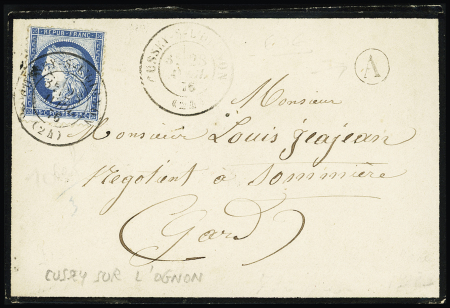 REPUB. FRANC.
(24)
CUSSEY-
(24)
A
Monsieur
Monsieur Louis Jeajean
Negotiant à Sommière
Gard
CUSSEY SUR L'OGNON